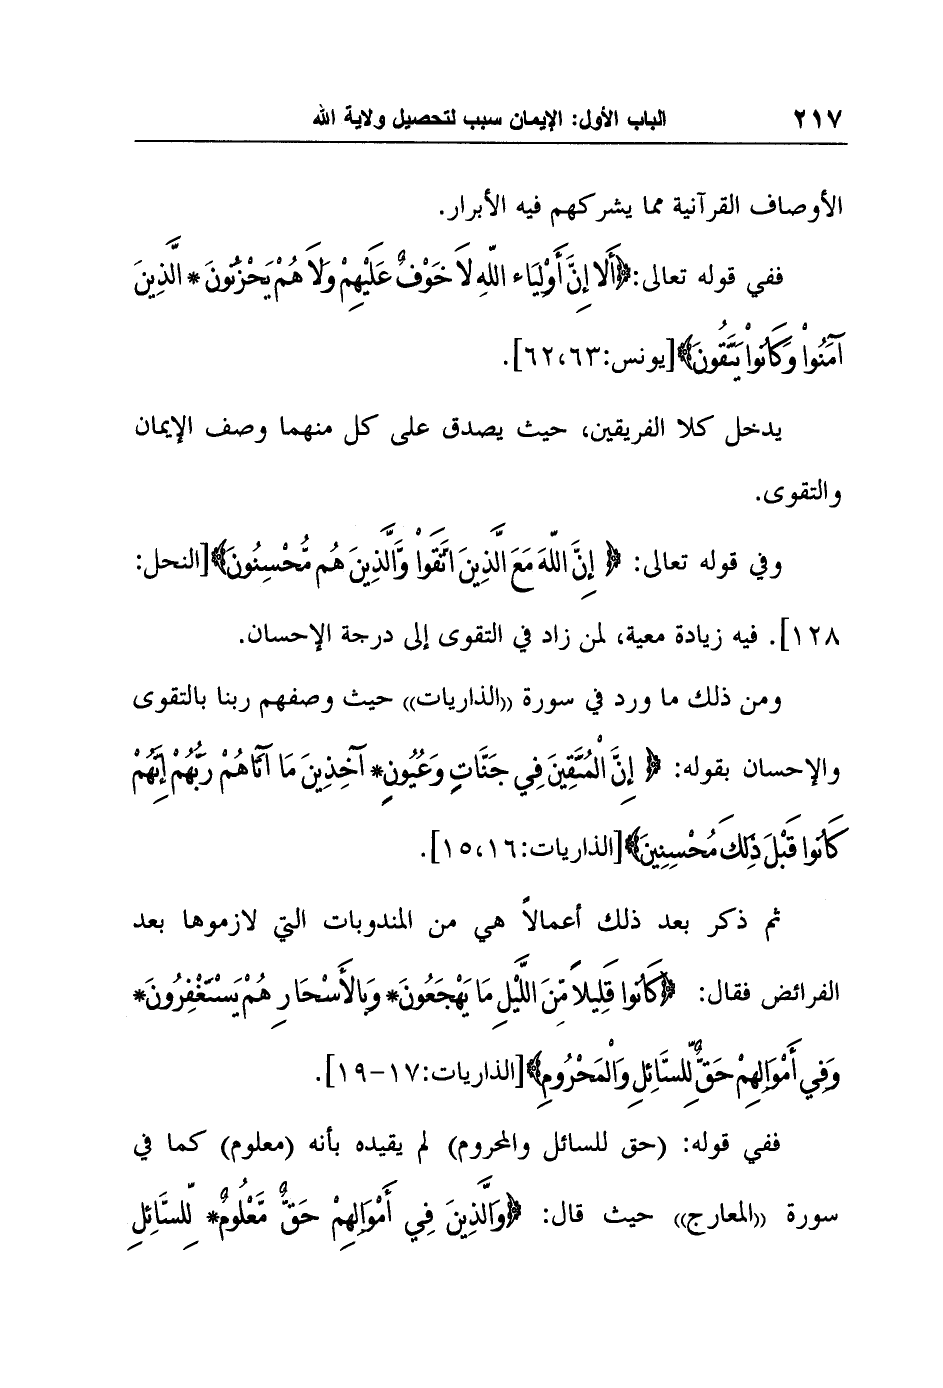 ٢١٧ الباب الأول: الإيمان سبب لتحصيل ولاية الله
الأوصاف القرآنية مما يشركهم فيه الأبرار.
ففي قوله تعالى: ﴿أَلا إِنَّ أَوْلِيَاء اللّهِ لاَ خَوْفٌ عَلَيْهِمْ وَلاَ هُمْ يَحْزَنُونَ * الَّذِينَ
آمَنُواْ وَكَانُواْ يَتَّقُونَ﴾[يونس:٦٢،٦٣].
يدخل كلا الفريقين، حيث يصدق على كل منهما وصف الإيمان
والتقوى.
وفي قوله تعالى: ﴿ إِنَّ اللّهَ مَعَ الَّذِينَ اتَّقَواْ وَّالَّذِينَ هُم مُّحْسِنُونَ﴾[النحل:
١٢٨]. فيه زيادة معية، لمن زاد في التقوى إلى درجة الإحسان.
ومن ذلك ما ورد في سورة ((الذاريات)) حيث وصفهم ربنا بالتقوى
والإحسان بقوله: ﴿ إِنَّ الْمُتَّقِينَ فِي جَنَّاتٍ وَعُيُونٍ* آخِذِينَ مَا آتَاهُمْ رَبُّهُمْ إِنَّهُمْ
كَانُوا قَبْلَ ذَلِكَ مُحْسِنِينَ﴾[الذاريات:١٥،١٦].
ثم ذكر بعد ذلك أعمالاً هي من المندوبات التي لازموها بعد
الفرائض فقال: ﴿كَانُوا قَلِيلاً مِّنَ اللَّيْلِ مَا يَهْجَعُونَ* وَبِالأَسْحَارِ هُمْ يَسْتَغْفِرُونَ*
وَفِي أَمْوَالِهِمْ حَقٌّ لِّلسَّائِلِ وَالْمَحْرُومِ﴾[الذاريات:١٧-١٩].
ففي قوله: (حق للسائل والمحروم) لم يقيده بأنه (معلوم) كما في
سورة ((المعارج)) حيث قال: ﴿وَالَّذِينَ فِي أَمْوَالِهِمْ حَقٌّ مَّعْلُومٌ* لِّلسَّائِلِ